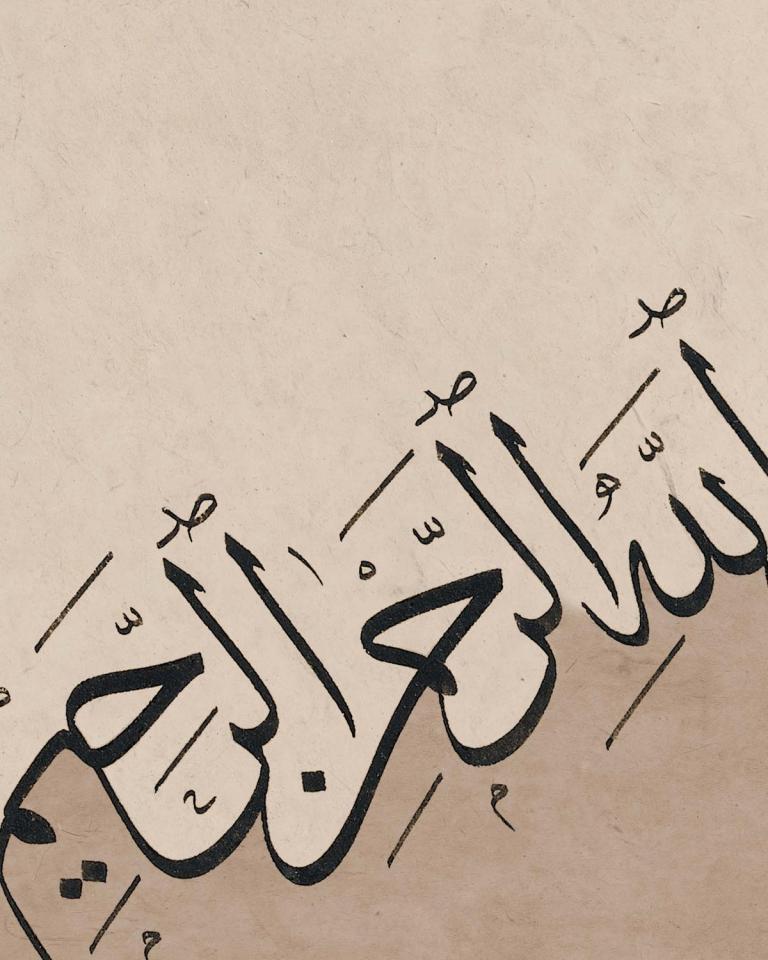 ٱللَّهِ ٱلرَّحْمَنِ ٱلرَّحِيمِ